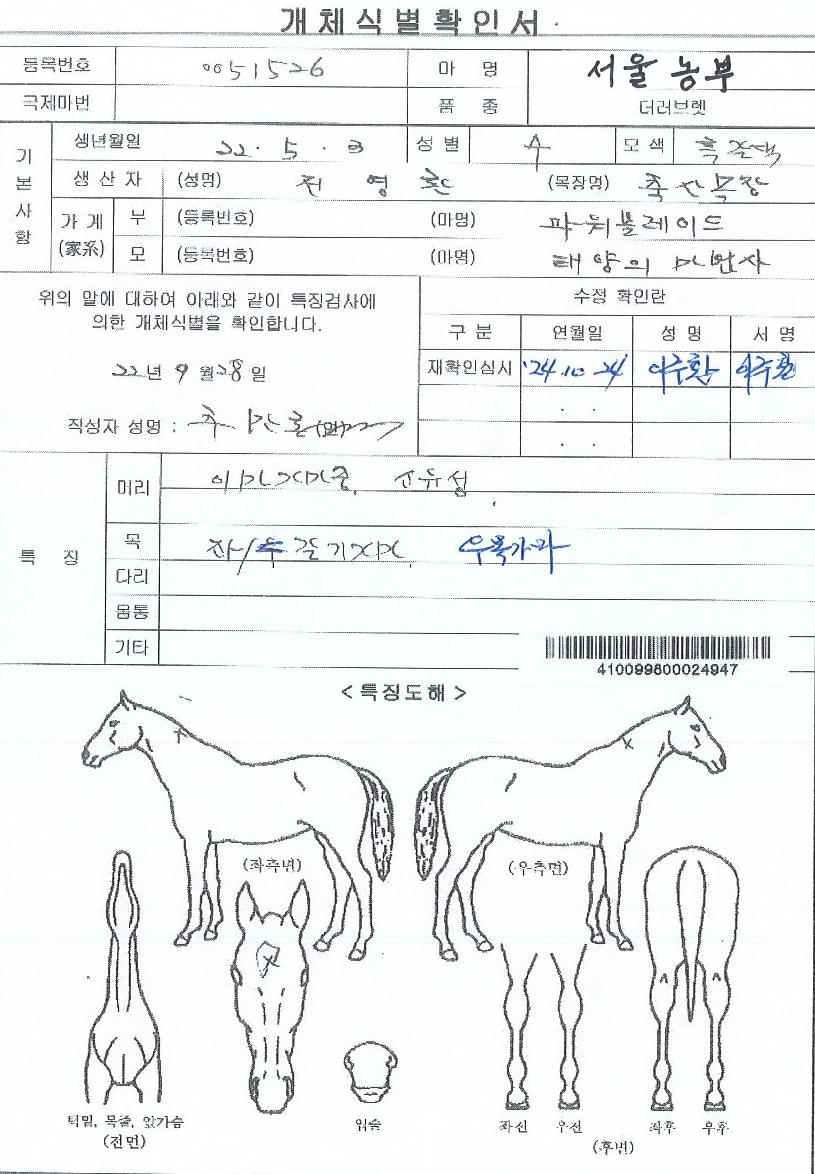 개체식별확인서
등록번호 0051526 마 명 서울 농부
국제마번 품 종 더러브렛
기본사항
생년월일 22. 5. 3 성별 수 모색 흑갈색
생 산 자 (성명) 전 영 환 (목장명) 축산목장
가 계 (家系)
부 (등록번호) (마명) 파워블레이드
모 (등록번호) (마명) 태양의 미한사
위의 말에 대하여 아래와 같이 특징검사에
의한 개체식별을 확인합니다.
22년 9월 28일
작성자 성명 :
수정 확인란
구 분 연월일 성 명 서 명
재확인심시 '24.10.24 이주환 이주환
. .
. .
특 징
머리
목 좌/우 갈기 우목가마
다리
몸통
기타
410099800024947
< 특징도해 >
(좌측면) (우측면)
턱밑, 목줄, 앞가슴
(전면)
입술
좌전 우전 좌후 우후
(후면)